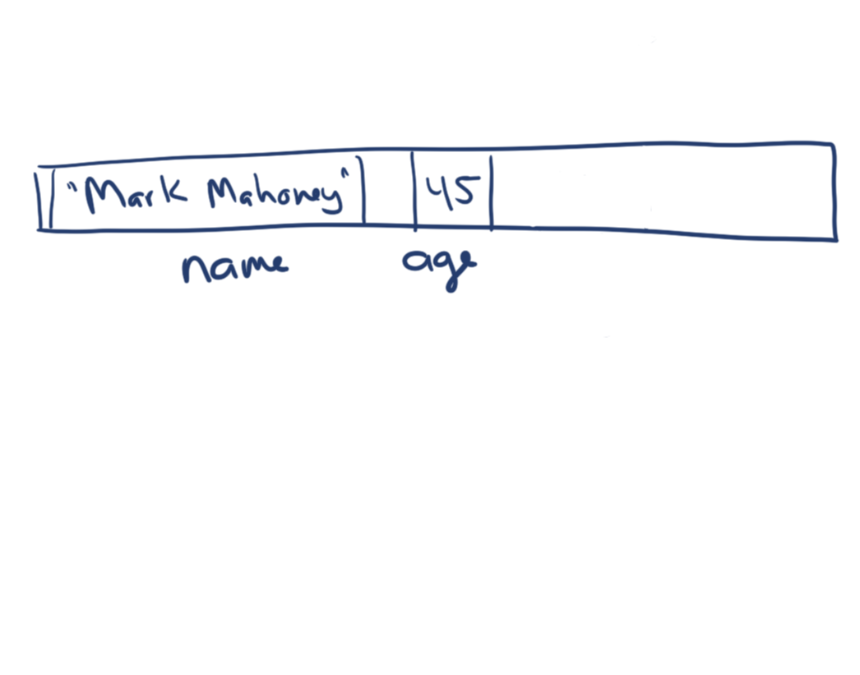 "Mark Mahoney" 45
name age